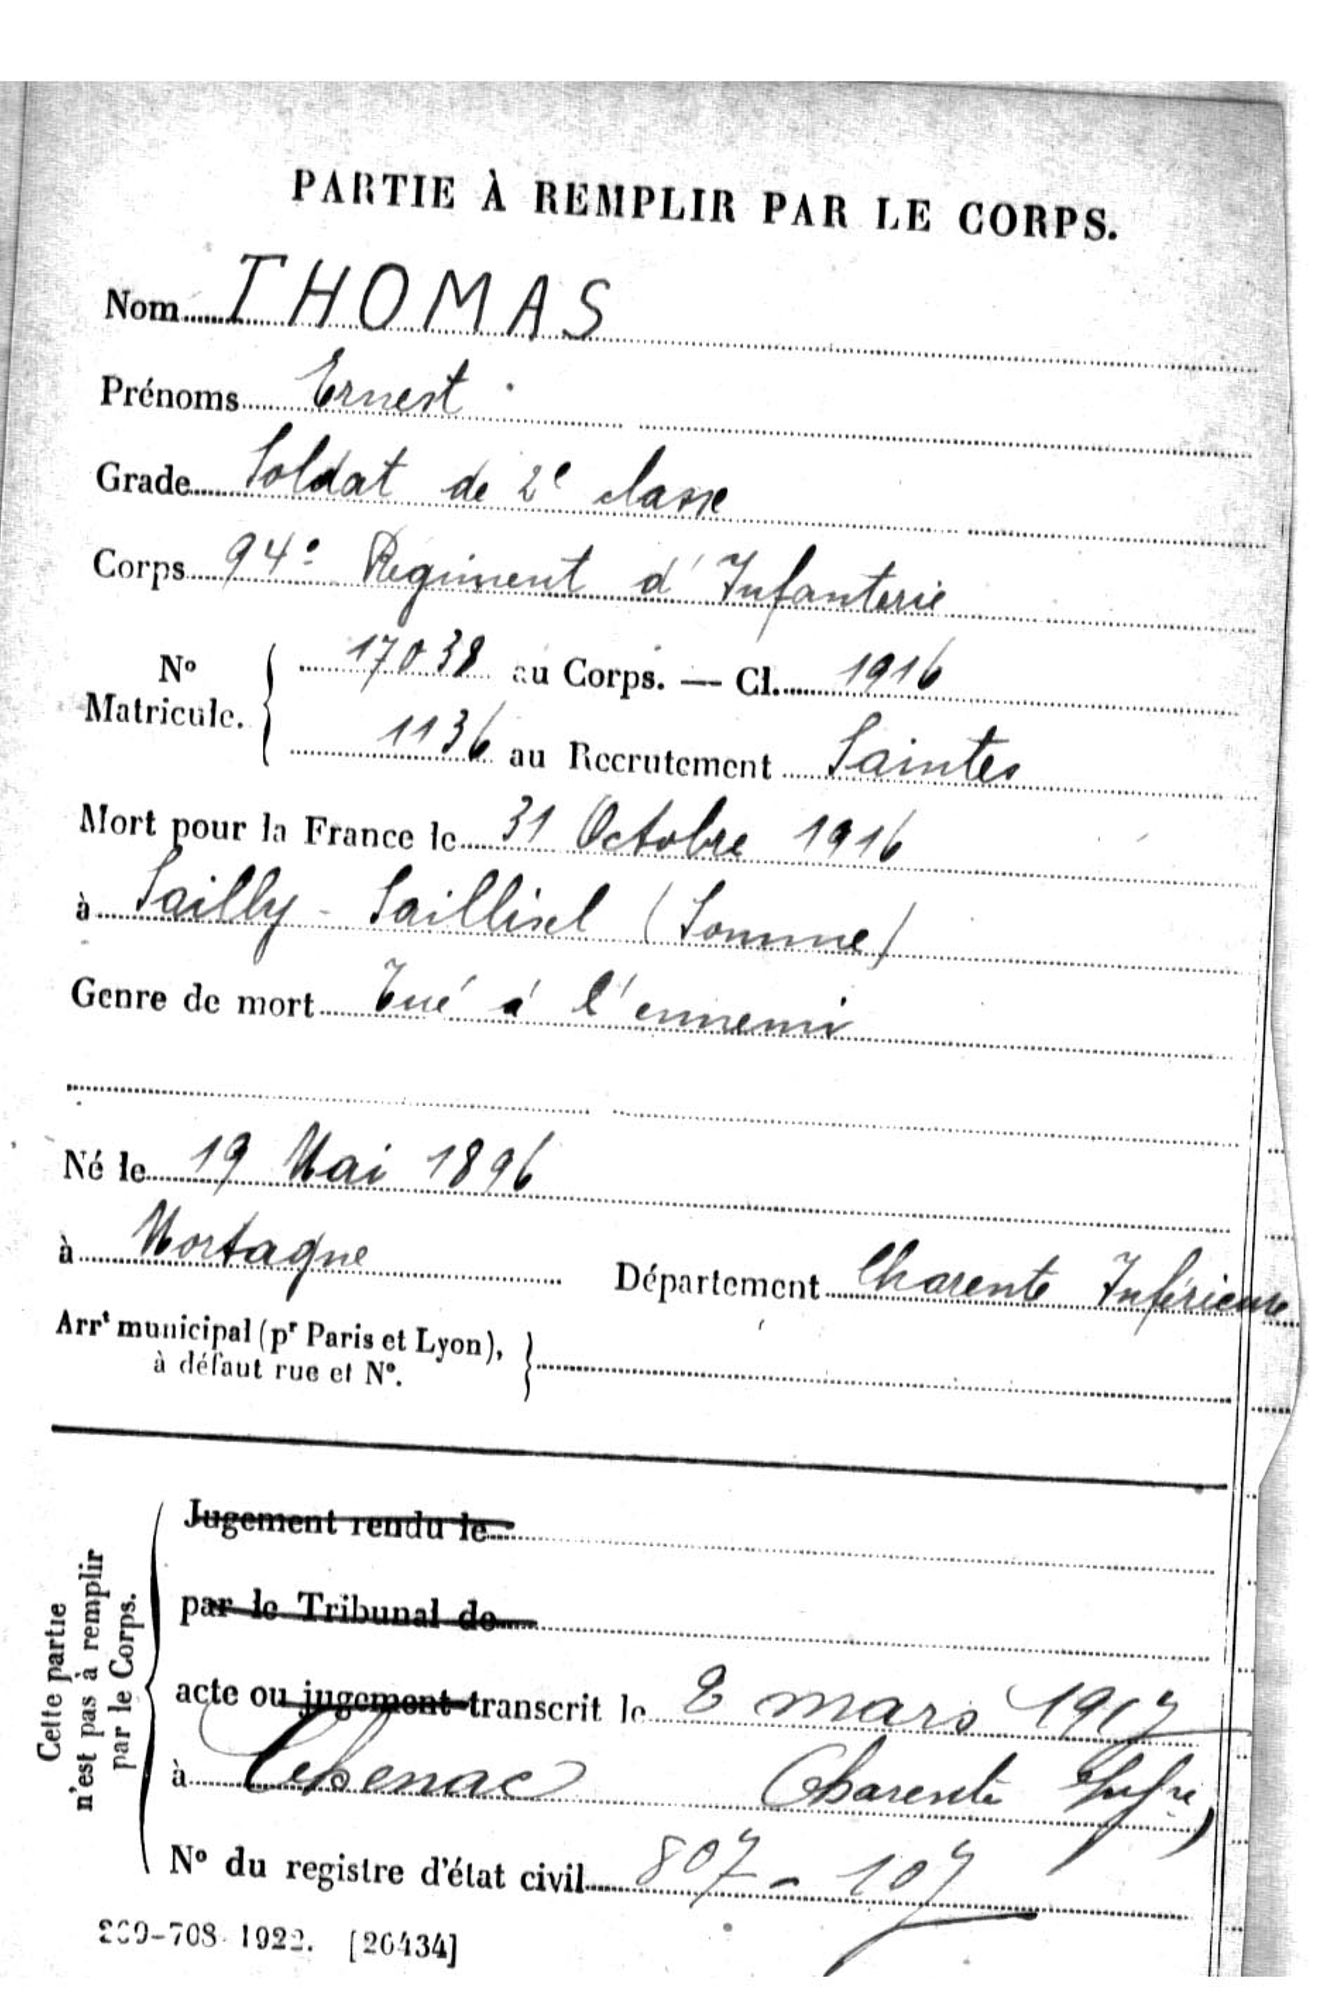 PARTIE À REMPLIR PAR LE CORPS.
Nom THOMAS
Prénoms Ernest
Grade Soldat de 2e classe
Corps 94e Régiment d'Infanterie
No Matricule. { 17038 au Corps. — Cl. 1916
1136 au Recrutement Saintes
Mort pour la France le 31 Octobre 1916
à Sailly-Saillisel (Somme)
Genre de mort Tué à l'ennemi
Né le 19 Mai 1896
à Mortagne Département Charente Inférieure
Arrt municipal (pr Paris et Lyon),
à défaut rue et No.
Cette partie
n'est pas à remplir
par le Corps.
Jugement rendu le
par le Tribunal de
acte ou jugement transcrit le 2 mars 1917
à Chenac Charente Infre)
No du registre d'état civil 807-107
-708-1922. [26434]